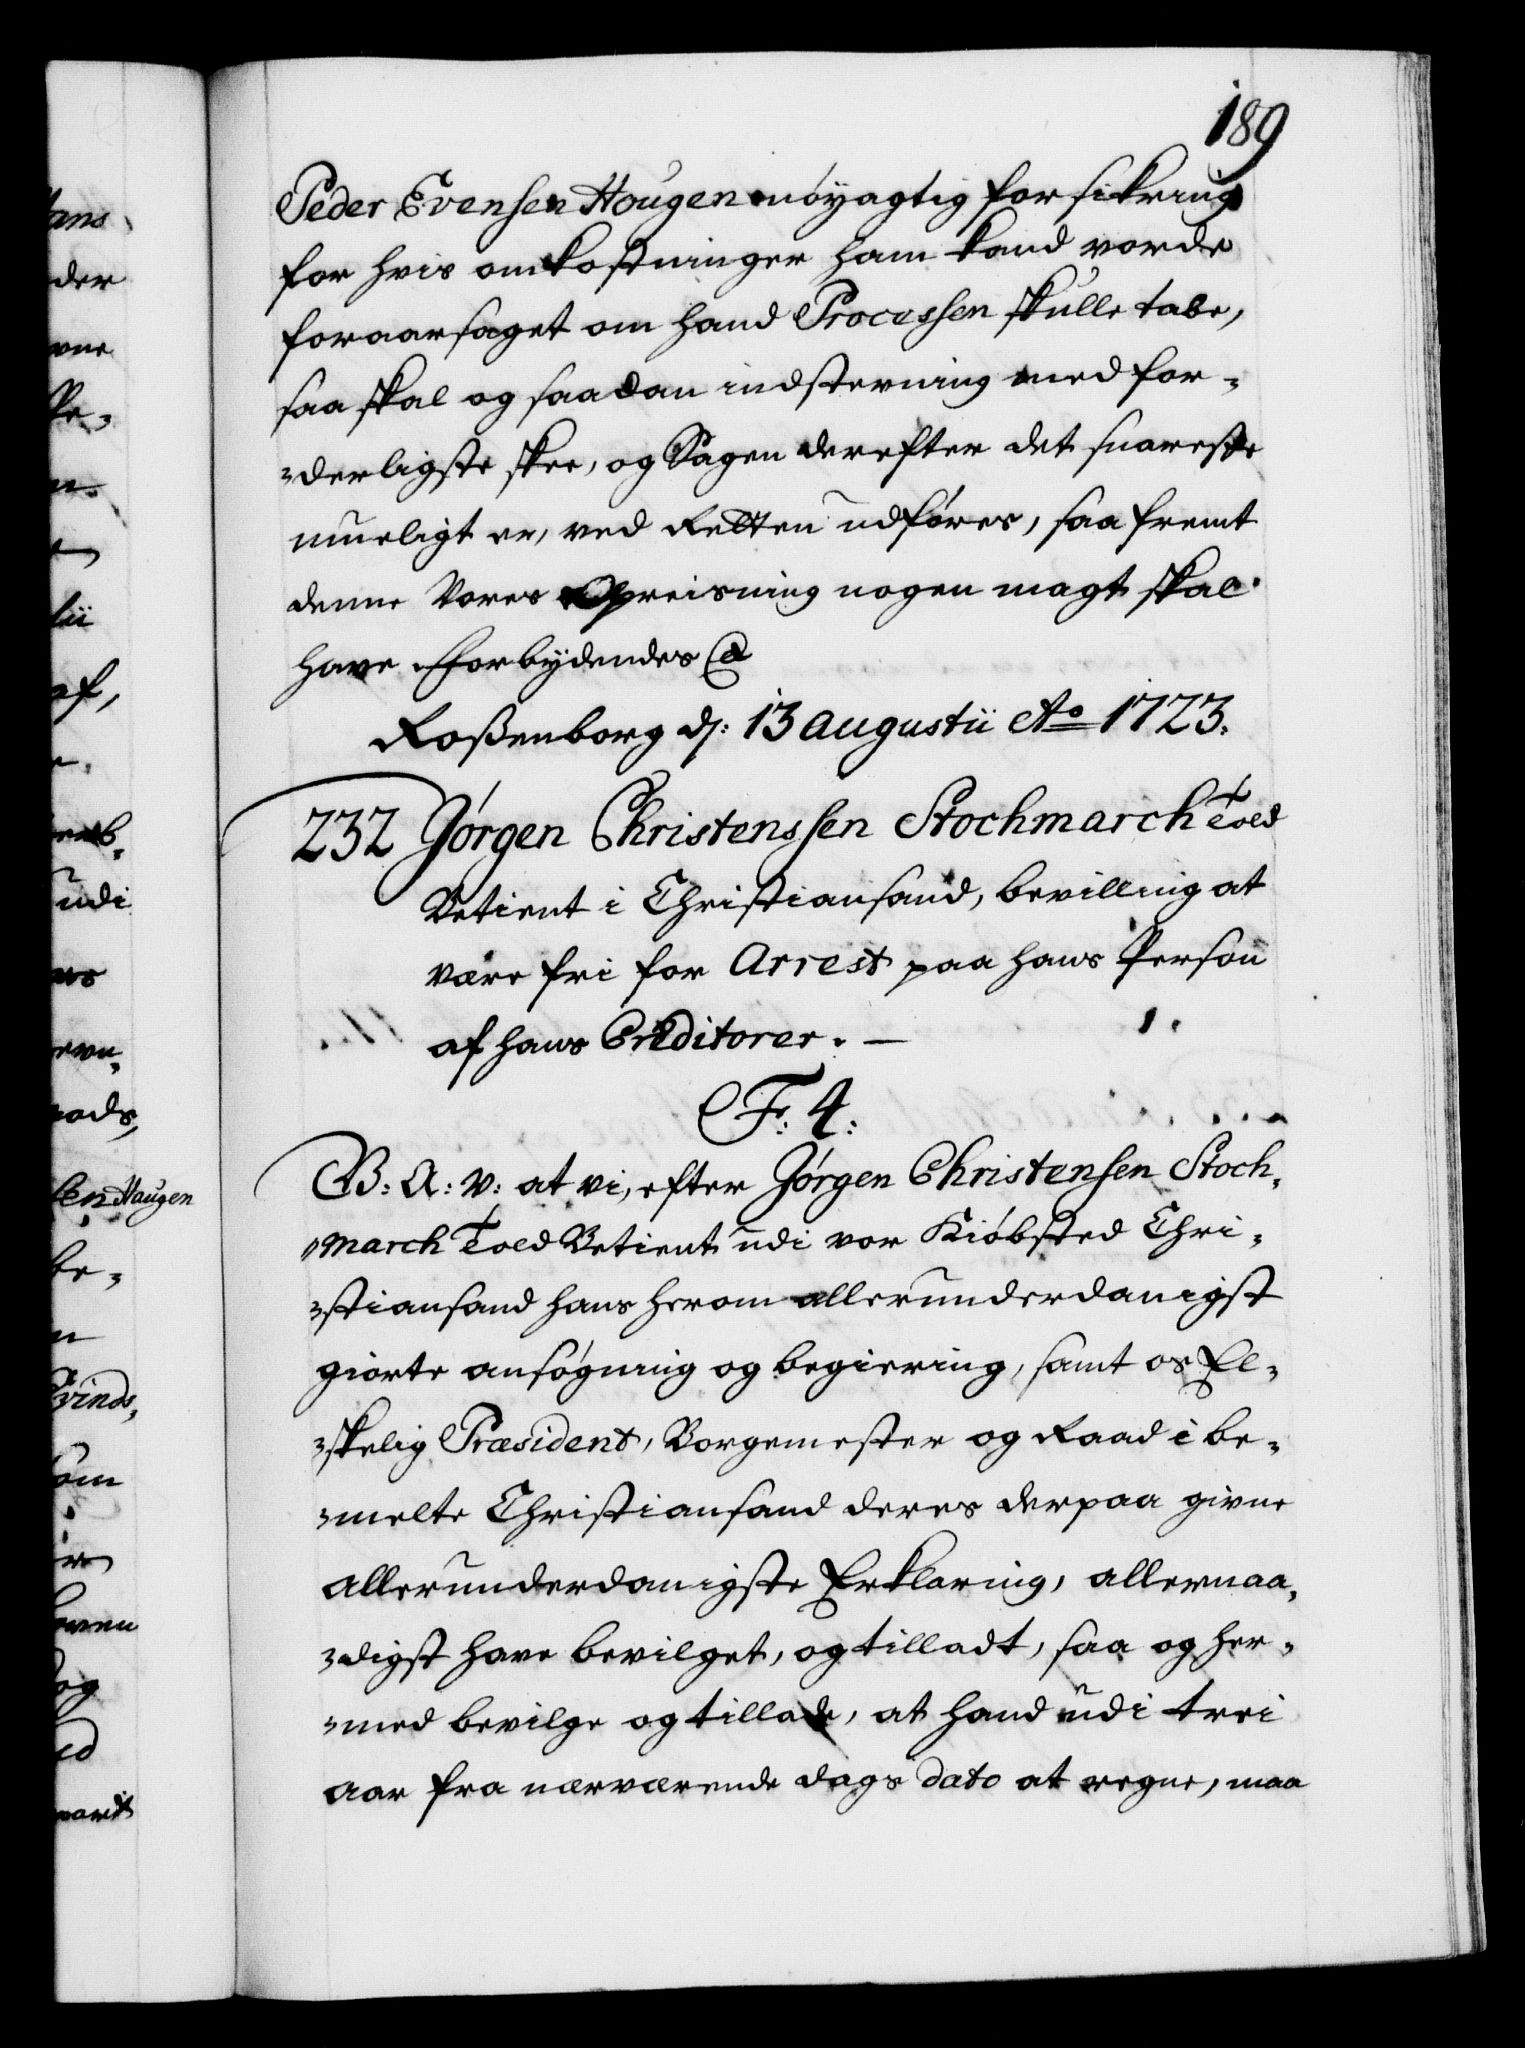 189
Peder Evensen Hougen nöyagtig forsikring
for hvis omkostninger ham kand vorde
foraarsaget om hand Processen skulle tabe,
saa skal og saadan indstevning med for-
-derligste skee, og Sagen derefter det snareste
mueligt er, ved Retten udföres, saa fremt
denne Vores Opreisning nogen magt skal
have Forbydendes &
Roßenborg d: 13 Augustii Ao 1723.
232 Jörgen Christenssen Stochmarch Told
Betient i Christiansand, bevilling at
være fri for Arrest paa hans Person
af hans Creditorer. —
F: 4:
G: A: V: at vi, efter Jörgen Christensen Stoch-
-march Told Betient udi vor Kiöbsted Chri-
-stiansand hans herom allerunderdanigst
giorte ansögning og begiering, samt os El-
-skelig Præsident, Borgemester og Raad i be-
-melte Christiansand deres derpaa givne
allerunderdanigste Erklaring, allernaa-
-digst have bevilget, og tilladt, saa og her-
-med bevilge og tillade, at hand udi trei
aar fra nærværende dags dato at regne, maa
ans
der
vne
n
lii
af,
udi
ods,
sen Haugen
be-
n
Evinds,
som
og